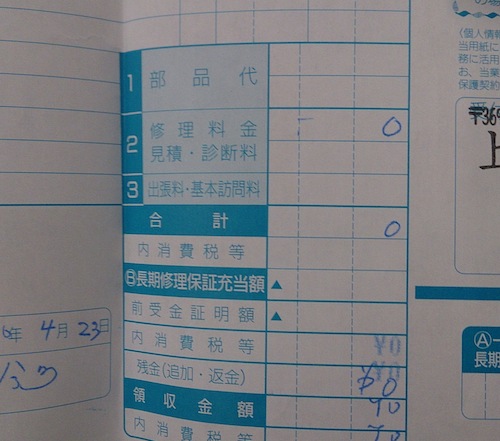 1 部品代
2 修理料金 0
見積・診断料
3 出張料・基本訪問料
合計 0
内消費税等
Ⓑ長期修理保証充当額 ▲
前受金証明額 ▲
内消費税等 ¥0
残金(追加・返金) ¥0
領収金額 ¥0
内消費税等 ¥0
6年 4月 23日
(個人情報
当用紙に
務に活用
お、当業
保護契約
〒369
上
Ⓐ一
長期